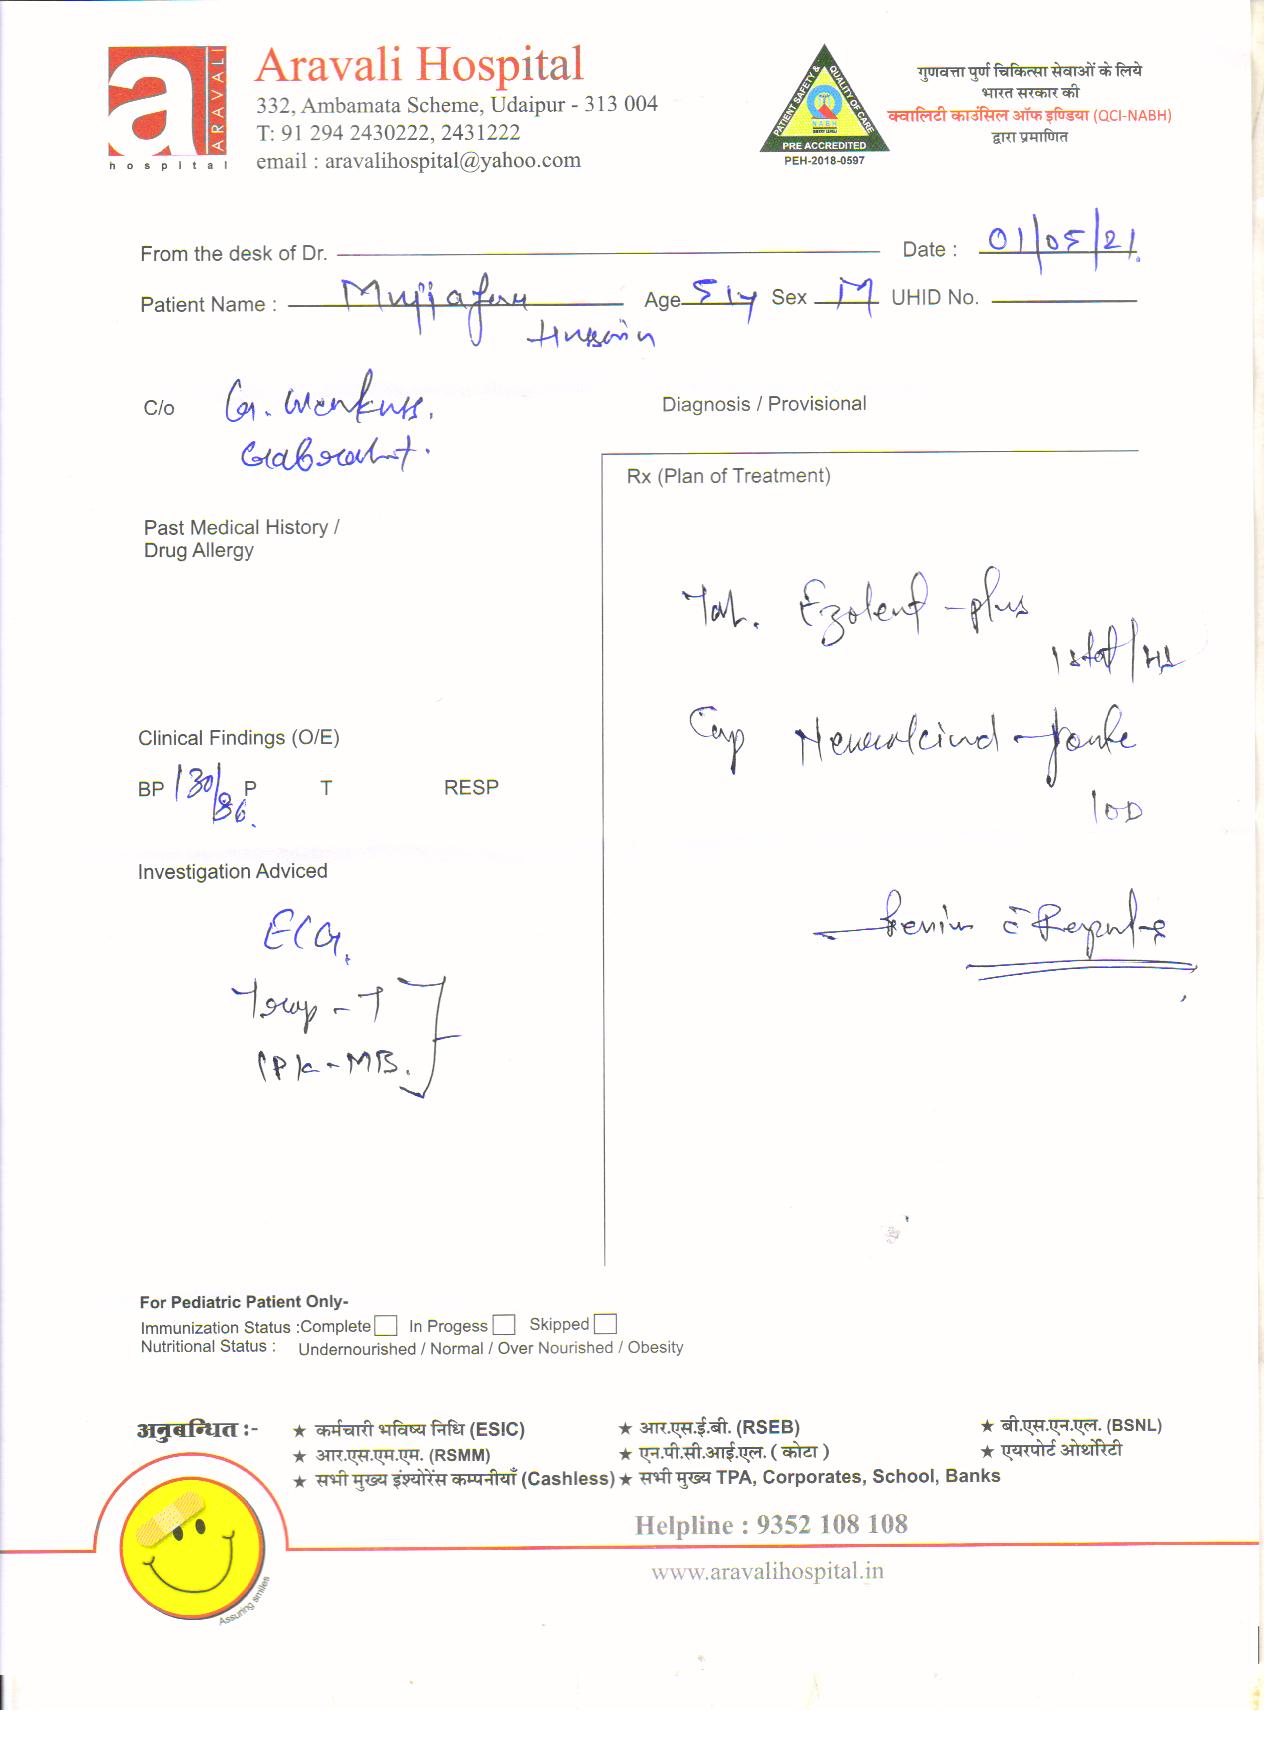 ARAVALI
hospital
Aravali Hospital
332, Ambamata Scheme, Udaipur - 313 004
T: 91 294 2430222, 2431222
email : aravalihospital@yahoo.com
PATIENT SAFETY & QUALITY OF CARE
NABH
PRE ACCREDITED
PEH-2018-0597
गुणवत्ता पुर्ण चिकित्सा सेवाओं के लिये
भारत सरकार की
क्वालिटी काउंसिल ऑफ इण्डिया (QCI-NABH)
द्वारा प्रमाणित
From the desk of Dr. Date : 01/05/21
Patient Name : Age 51y Sex M UHID No.
Hussain
C/o G. Weakness.
Diagnosis / Provisional
Rx (Plan of Treatment)
Past Medical History /
Drug Allergy
Tab. -plus
1 stat/
Cap -forte
1OD
Clinical Findings (O/E)
BP 130/86 P T RESP
Investigation Adviced
ECG,
Trop-T
CPK-MB.
Review c̄ Reports
For Pediatric Patient Only-
Immunization Status :Complete In Progess Skipped
Nutritional Status : Undernourished / Normal / Over Nourished / Obesity
अनुबन्धित :-
★ कर्मचारी भविष्य निधि (ESIC) ★ आर.एस.ई.बी. (RSEB) ★ बी.एस.एन.एल. (BSNL)
★ आर.एस.एम.एम. (RSMM) ★ एन.पी.सी.आई.एल. ( कोटा ) ★ एयरपोर्ट ओथोरेटी
★ सभी मुख्य इंश्योरेंस कम्पनीयाँ (Cashless) ★ सभी मुख्य TPA, Corporates, School, Banks
Helpline : 9352 108 108
www.aravalihospital.in
Assuring smiles